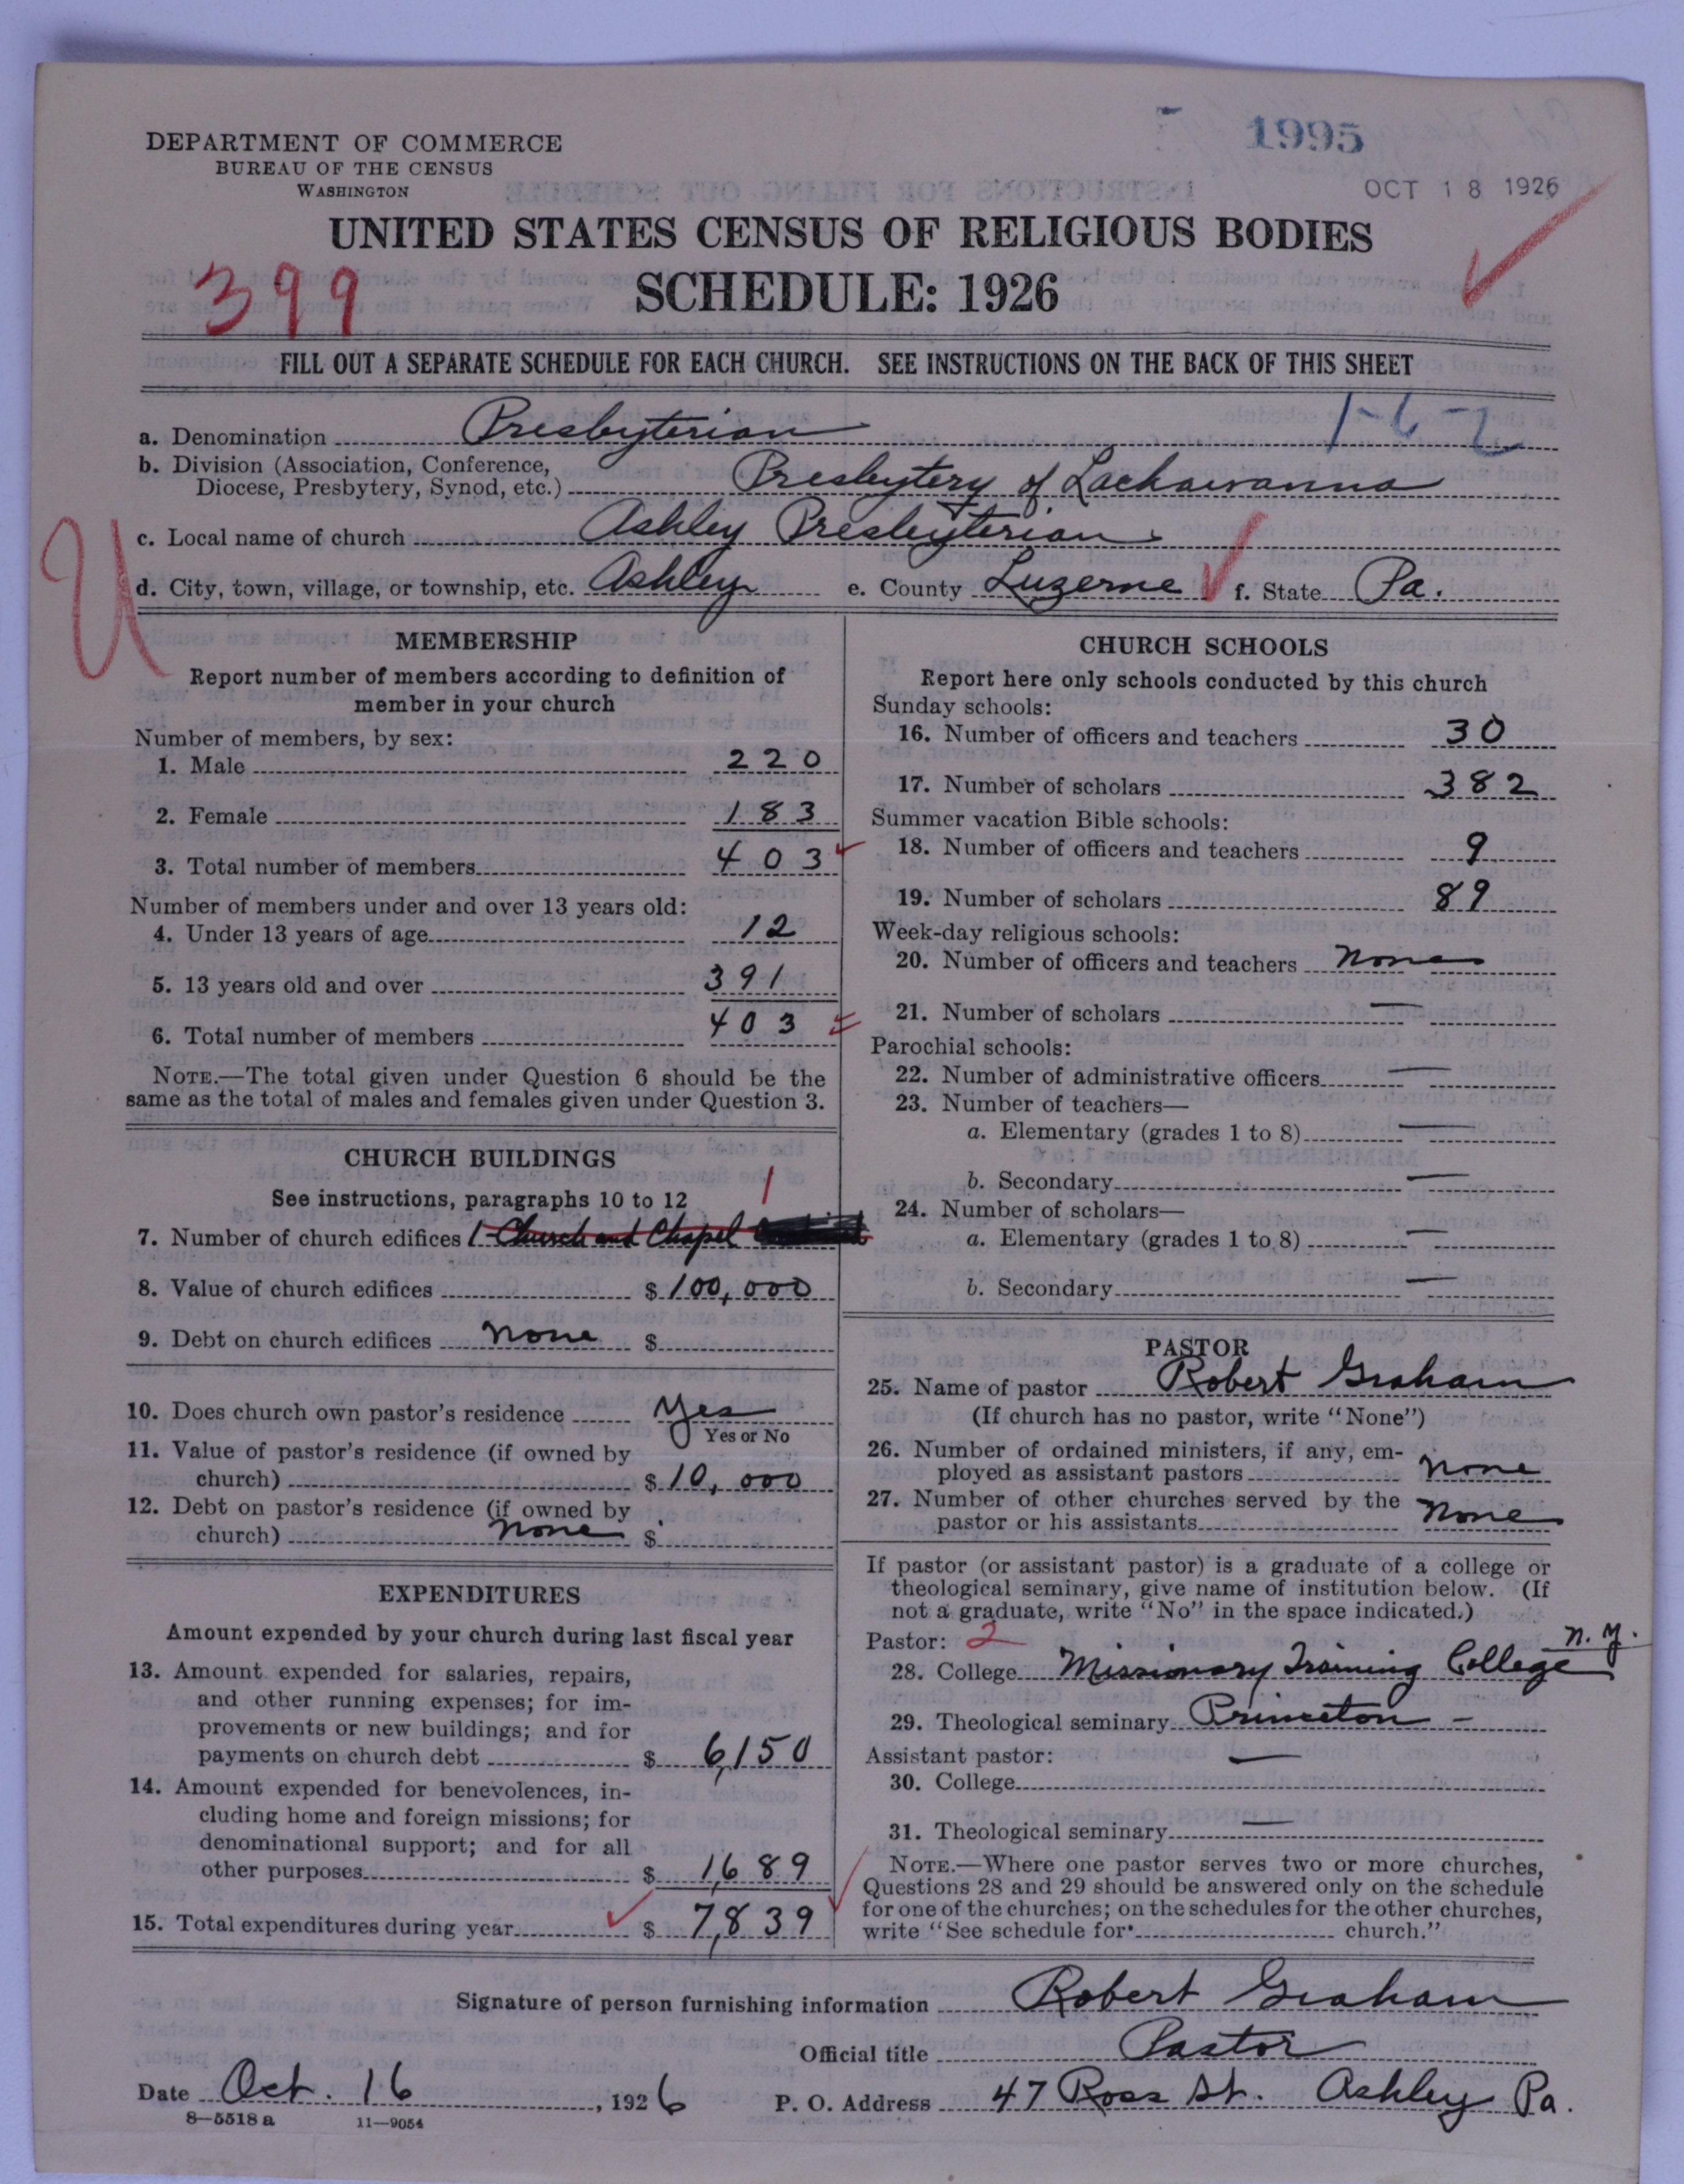 1995
DEPARTMENT OF COMMERCE
BUREAU OF THE CENSUS
WASHINGTON
OCT 18 1926
UNITED STATES CENSUS OF RELIGIOUS BODIES
399
SCHEDULE: 1926
FILL OUT A SEPARATE SCHEDULE FOR EACH CHURCH. SEE INSTRUCTIONS ON THE BACK OF THIS SHEET
1-6-2
a. Denomination Presbyterian
b. Division (Association, Conference,
Diocese, Presbytery, Synod, etc.) Presbytery of Lackawanna
c. Local name of church Ashley Presbyterian
U
d. City, town, village, or township, etc. Ashley e. County Luzerne f. State Pa.
MEMBERSHIP
Report number of members according to definition of
member in your church
Number of members, by sex:
1. Male 220
2. Female 183
3. Total number of members 403
Number of members under and over 13 years old:
4. Under 13 years of age 12
5. 13 years old and over 391
6. Total number of members 403
NOTE.—The total given under Question 6 should be the
same as the total of males and females given under Question 3.
CHURCH BUILDINGS
See instructions, paragraphs 10 to 12
1
7. Number of church edifices 1-Church and Chapel
8. Value of church edifices $ 100,000
9. Debt on church edifices none $
10. Does church own pastor's residence yes
Yes or No
11. Value of pastor's residence (if owned by
church) $ 10,000
12. Debt on pastor's residence (if owned by
church) none $
EXPENDITURES
Amount expended by your church during last fiscal year
13. Amount expended for salaries, repairs,
and other running expenses; for im-
provements or new buildings; and for
payments on church debt $ 6,150
14. Amount expended for benevolences, in-
cluding home and foreign missions; for
denominational support; and for all
other purposes $ 1,689
15. Total expenditures during year $ 7,839
CHURCH SCHOOLS
Report here only schools conducted by this church
Sunday schools:
16. Number of officers and teachers 30
17. Number of scholars 382
Summer vacation Bible schools:
18. Number of officers and teachers 9
19. Number of scholars 89
Week-day religious schools:
20. Number of officers and teachers none
21. Number of scholars —
Parochial schools:
22. Number of administrative officers —
23. Number of teachers—
a. Elementary (grades 1 to 8) —
b. Secondary —
24. Number of scholars—
a. Elementary (grades 1 to 8) —
b. Secondary —
PASTOR
25. Name of pastor Robert Graham
(If church has no pastor, write "None")
26. Number of ordained ministers, if any, em-
ployed as assistant pastors none
27. Number of other churches served by the
pastor or his assistants none
If pastor (or assistant pastor) is a graduate of a college or
theological seminary, give name of institution below. (If
not a graduate, write "No" in the space indicated.)
Pastor: 2
28. College Missionary Training College N.Y.
29. Theological seminary Princeton -
Assistant pastor: —
30. College
31. Theological seminary —
NOTE.—Where one pastor serves two or more churches,
Questions 28 and 29 should be answered only on the schedule
for one of the churches; on the schedules for the other churches,
write "See schedule for church."
Signature of person furnishing information Robert Graham
Official title Pastor
Date Oct. 16, 1926 P. O. Address 47 Ross St. Ashley Pa.
8—5518 a 11—9054